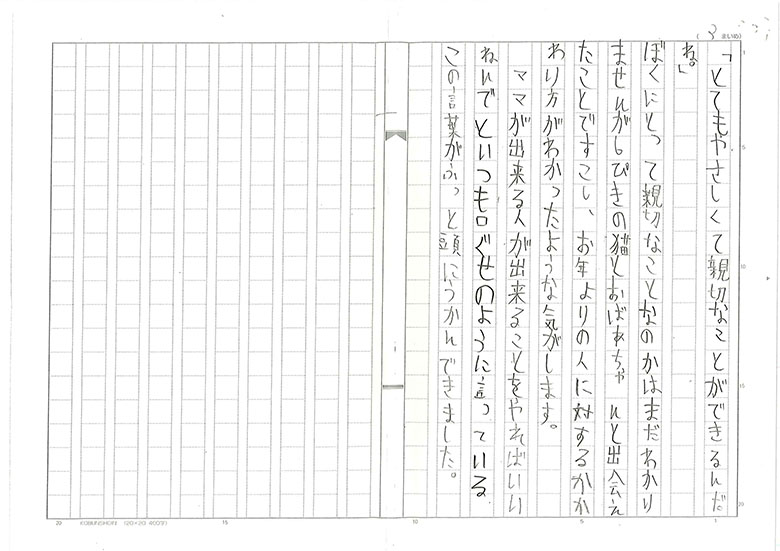 (3まいめ)
「とてもやさしくて親切なことができるんだ
ね。」
ぼくにとって親切なことなのかはまだわかり
ませんが6ぴきの猫とおばあちゃんと出会え
たことですこし、お年よりの人に対するかか
わり方がわかったような気がします。
ママが出来る人が出来ることをやればいい
ねんでといつも口ぐせのように言っている
この言葉がふっと頭にうかんできました。
1
5
10
15
20
20
15
10
5
1
KOBUNSHOIN (20×20.400字)